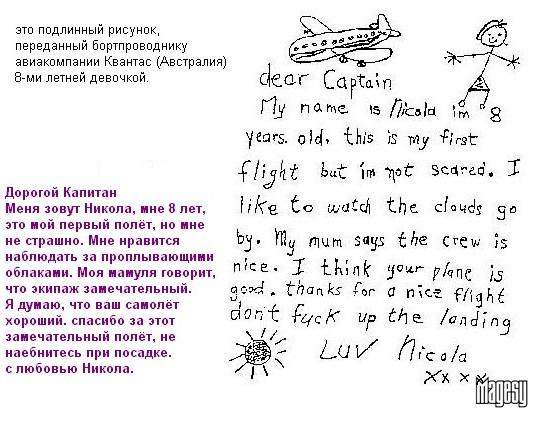 это подлинный рисунок,
переданный бортпроводнику
авиакомпании Квантас (Австралия)
8-ми летней девочкой.
dear Captain
My name is Nicola im 8
years. old, this is my first
flight but im not scared. I
like to watch the clouds go
by. My mum says the crew is
nice. I think your plane is
good. thanks for a nice flight
don't fuck up the landing
LUV Nicola
xxxx
Дорогой Капитан
Меня зовут Никола, мне 8 лет,
это мой первый полёт, но мне
не страшно. Мне нравится
наблюдать за проплывающими
облаками. Моя мамуля говорит,
что экипаж замечательный.
Я думаю, что ваш самолёт
хороший. спасибо за этот
замечательный полёт, не
наебнитесь при посадке.
с любовью Никола.
magesy